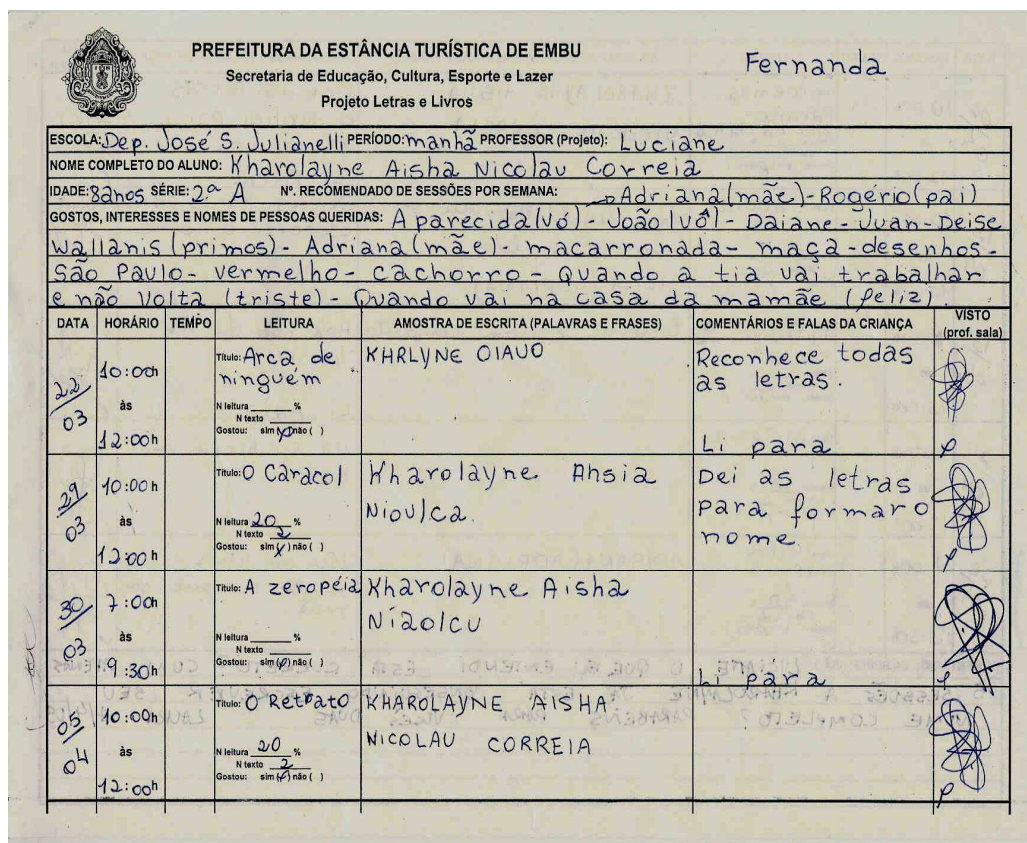 PREFEITURA DA ESTÂNCIA TURÍSTICA DE EMBU
Secretaria de Educação, Cultura, Esporte e Lazer
Projeto Letras e Livros
Fernanda
ESCOLA: Dep. José S. Julianelli PERÍODO: manhã PROFESSOR (Projeto): Luciane
NOME COMPLETO DO ALUNO: Kharolayne Aisha Nicolau Correia
IDADE: 8anos SÉRIE: 2ª A Nº. RECOMENDADO DE SESSÕES POR SEMANA: Adriana (mãe) - Rogério (pai)
GOSTOS, INTERESSES E NOMES DE PESSOAS QUERIDAS: Aparecida (vó) - João (vô) - Daiane - Juan - Deise
Wallanis (primos) - Adriana (mãe) - macarronada - maça - desenhos -
São Paulo - vermelho - cachorro - Quando a tia vai trabalhar
e não volta (triste) - Quando vai na casa da mamãe (feliz)
DATA HORÁRIO TEMPO LEITURA AMOSTRA DE ESCRITA (PALAVRAS E FRASES) COMENTÁRIOS E FALAS DA CRIANÇA VISTO (prof. sala)
22/03
10:00h
às
12:00h
Título: Arca de
ninguém
N leitura ____ %
N texto ____
Gostou: sim (x) não ( )
KHRLYNE OIAUO
Reconhece todas
as letras.
Li para
29/03
10:00h
às
12:00h
Título: O Caracol
N leitura 20 %
N texto 2
Gostou: sim (x) não ( )
Kharolayne Ahsia
Nioulca.
Dei as letras
para formar o
nome.
30/03
7:00h
às
9:30h
Título: A zeropéia
N leitura ____ %
N texto ____
Gostou: sim (x) não ( )
Kharolayne Aisha
Niaolcu
Li para
05/04
10:00h
às
12:00h
Título: O Retrato
N leitura 20 %
N texto 2
Gostou: sim (x) não ( )
KHAROLAYNE AISHA
NICOLAU CORREIA